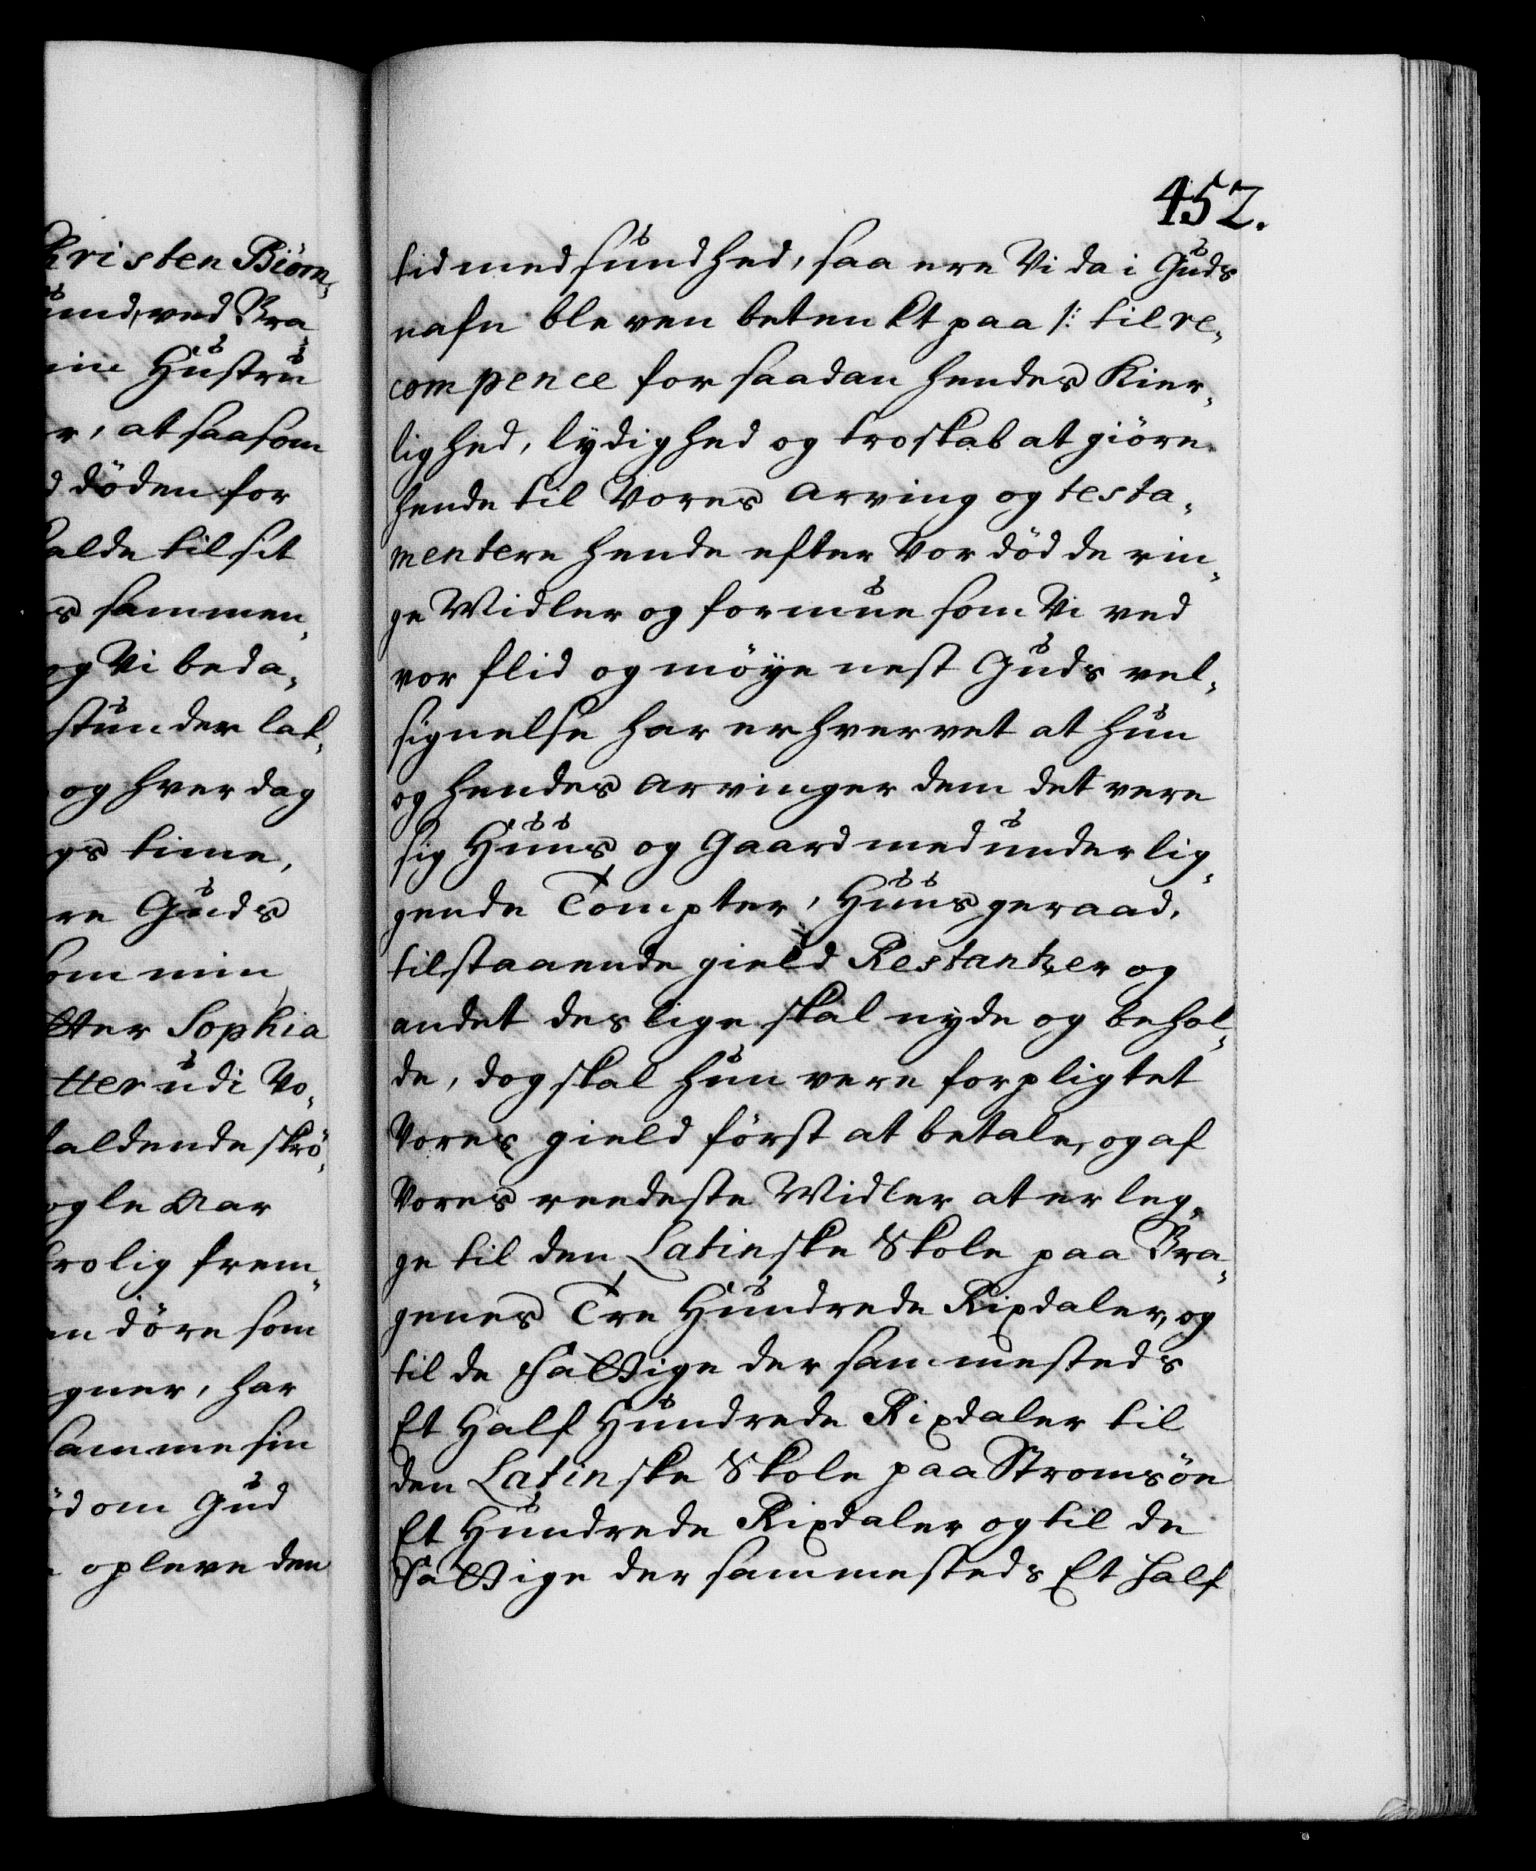 Kristen Biørn¬
und, ved Bra¬
min Hustru
r, at saasom
d døden for
kalde til sit
s sammen¬
og Vi beda¬
stunder lak¬
og hver dag
gs time,
re Guds
som min
tter Sophia
tter udi Vo¬
faldende skrø¬
ogle Aar
trolig frem¬
en døre som
gner, har
samme sin
ød om Gud
opleve den
452.
tid med sundhed, saa ere Vi da i Guds
nafn bleven betenkt paa /: til re¬
compence for saadan hendes Kier¬
lighed, lydighed og troskab at giøre
hende til Vores arving og testa¬
mentere hende efter Vor død de rin¬
ge Midler og formue som Vi ved
vor flid og møye nest Guds vel¬
signelse har erhvervet at hun
og hendes arvinger dem det vere
sig Huus og Gaard med underlig¬
gende Tompter, Huusgeraad,
tilstaaende gield Restantzer og
andet deslige skal nyde og behol¬
de, dog skal hun vere forpligtet
Vores gield først at betale, og af
Vores reedeste Midler at erleg¬
ge til den Latinske Skole paa Bra¬
genes Tre Hundrede Rixdaler, og
til de Fattige der sammesteds
Et Half Hundrede Rixdaler til
den Latinske Skole paa Stromsøe
Et Hundrede Rixdaler og til de
Fattige der sammesteds Et half